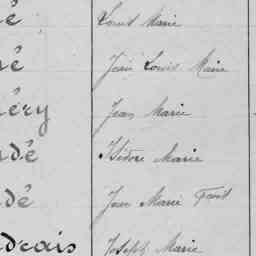 é Louis Marie
é Jean Louis Marie
éry Jean Marie
dé Isidore Marie
dé Jean Marie
drais Joseph Marie